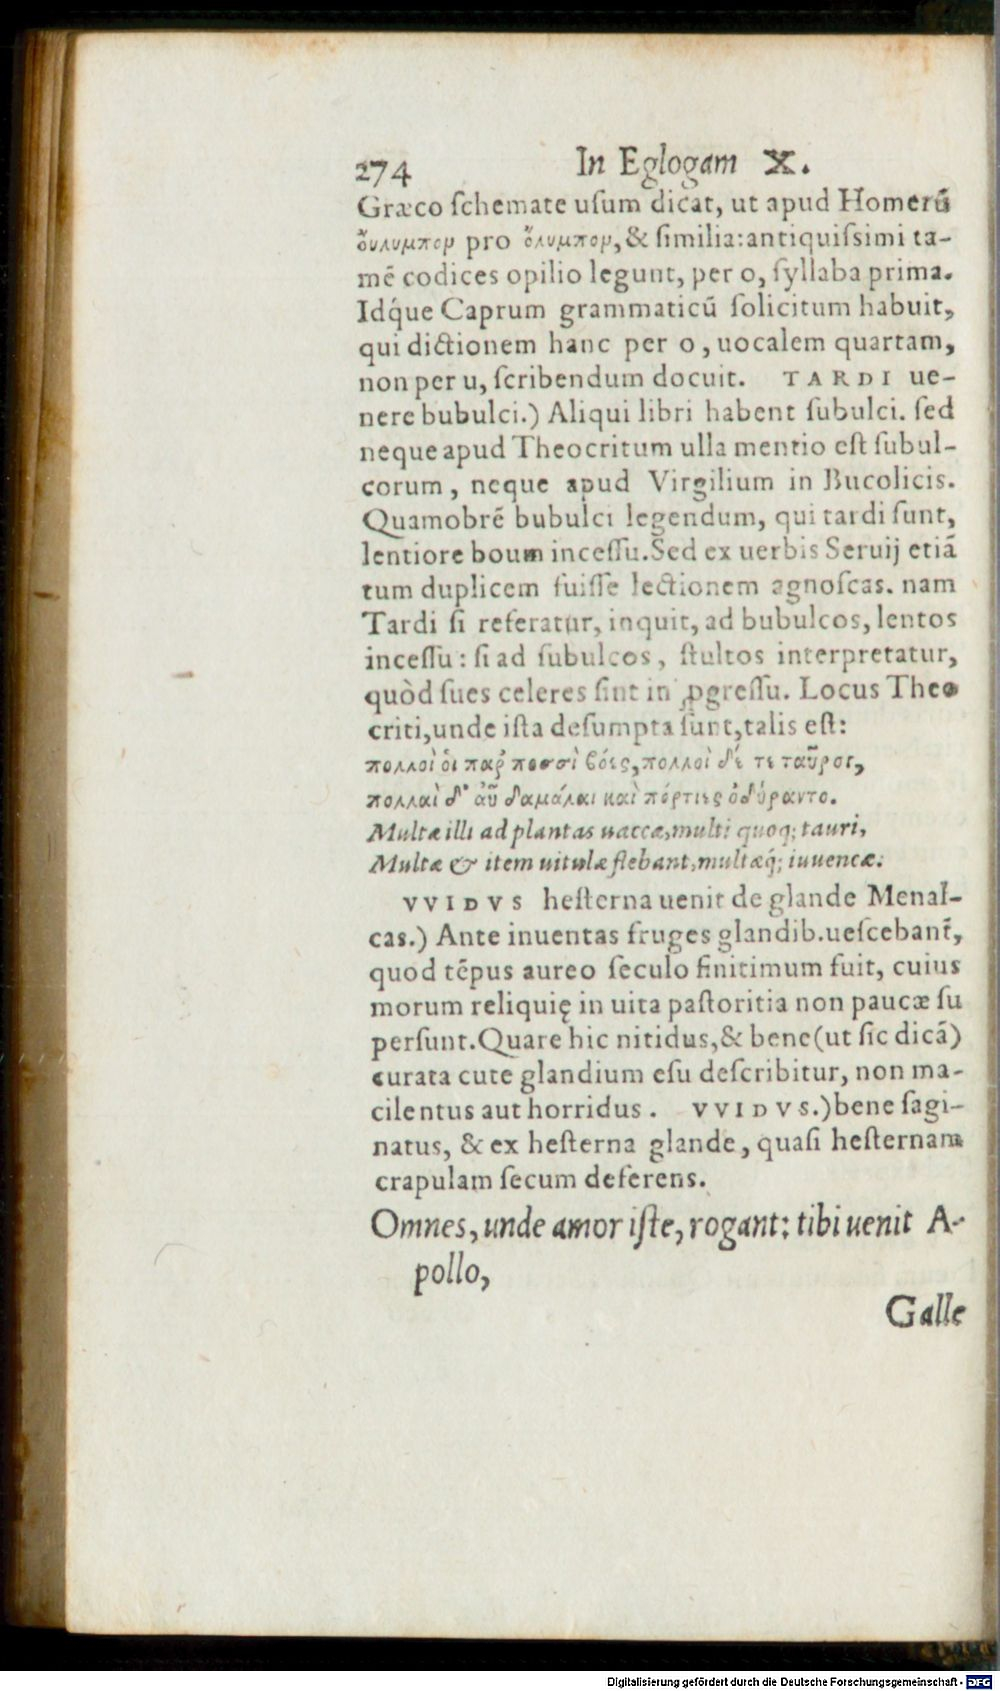 274 In Eglogam X.
Græco ſchemate uſum dicat, ut apud Homerū
ὄυλυμπον pro ὄλυμπον, & ſimilia: antiquiſsimi ta-
mē codices opilio legunt, per o, ſyllaba prima.
Idq́ue Caprum grammaticū ſolicitum habuit,
qui dictionem hanc per o, uocalem quartam,
non per u, ſcribendum docuit. TARDI ue-
nere bubulci.) Aliqui libri habent ſubulci. ſed
neque apud Theocritum ulla mentio eſt ſubul-
corum, neque apud Virgilium in Bucolicis.
Quamobrē bubulci legendum, qui tardi ſunt,
lentiore boum inceſſu. Sed ex uerbis Seruij etiā
tum duplicem fuiſſe lectionem agnoſcas. nam
Tardi ſi referatur, inquit, ad bubulcos, lentos
inceſſu: ſi ad ſubulcos, ſtultos interpretatur,
quòd ſues celeres ſint in ꝓgreſſu. Locus Theo
criti, unde iſta deſumpta ſunt, talis eſt:
πολλοὶ ὁι παρ ποσσὶ βόες, πολλοὶ δέ τε ταῦροι,
πολλαὶ δ' ἀῦ δαμάλαι καὶ πόρτιες ὀδύραντο.
Multæ illi ad plantas uaccæ, multi quoq; tauri,
Multæ & item uitulæ flebant, multæq́; iuuencæ:
VVIDVS heſterna uenit de glande Menal-
cas.) Ante inuentas fruges glandib. ueſcebant̃,
quod tēpus aureo ſeculo finitimum fuit, cuius
morum reliquię in uita paſtoritia non paucæ ſu
perſunt. Quare hic nitidus, & bene (ut ſic dicā)
curata cute glandium eſu deſcribitur, non ma-
cilentus aut horridus. VVIDVS.) bene ſagi-
natus, & ex heſterna glande, quaſi heſternam
crapulam ſecum deferens.
Omnes, unde amor iſte, rogant: tibi uenit A-
pollo,
Galle
Digitalisierung gefördert durch die Deutsche Forschungsgemeinschaft - DFG